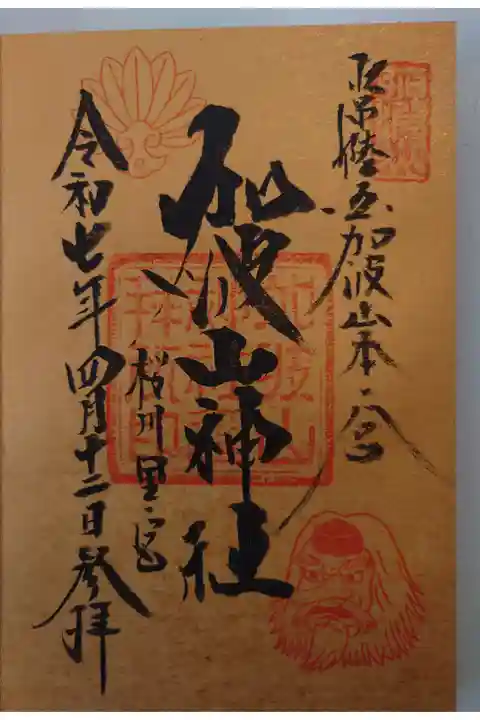 常陸国加波山本宮
加波山神社
桜川里宮
令和七年四月十二日参拝